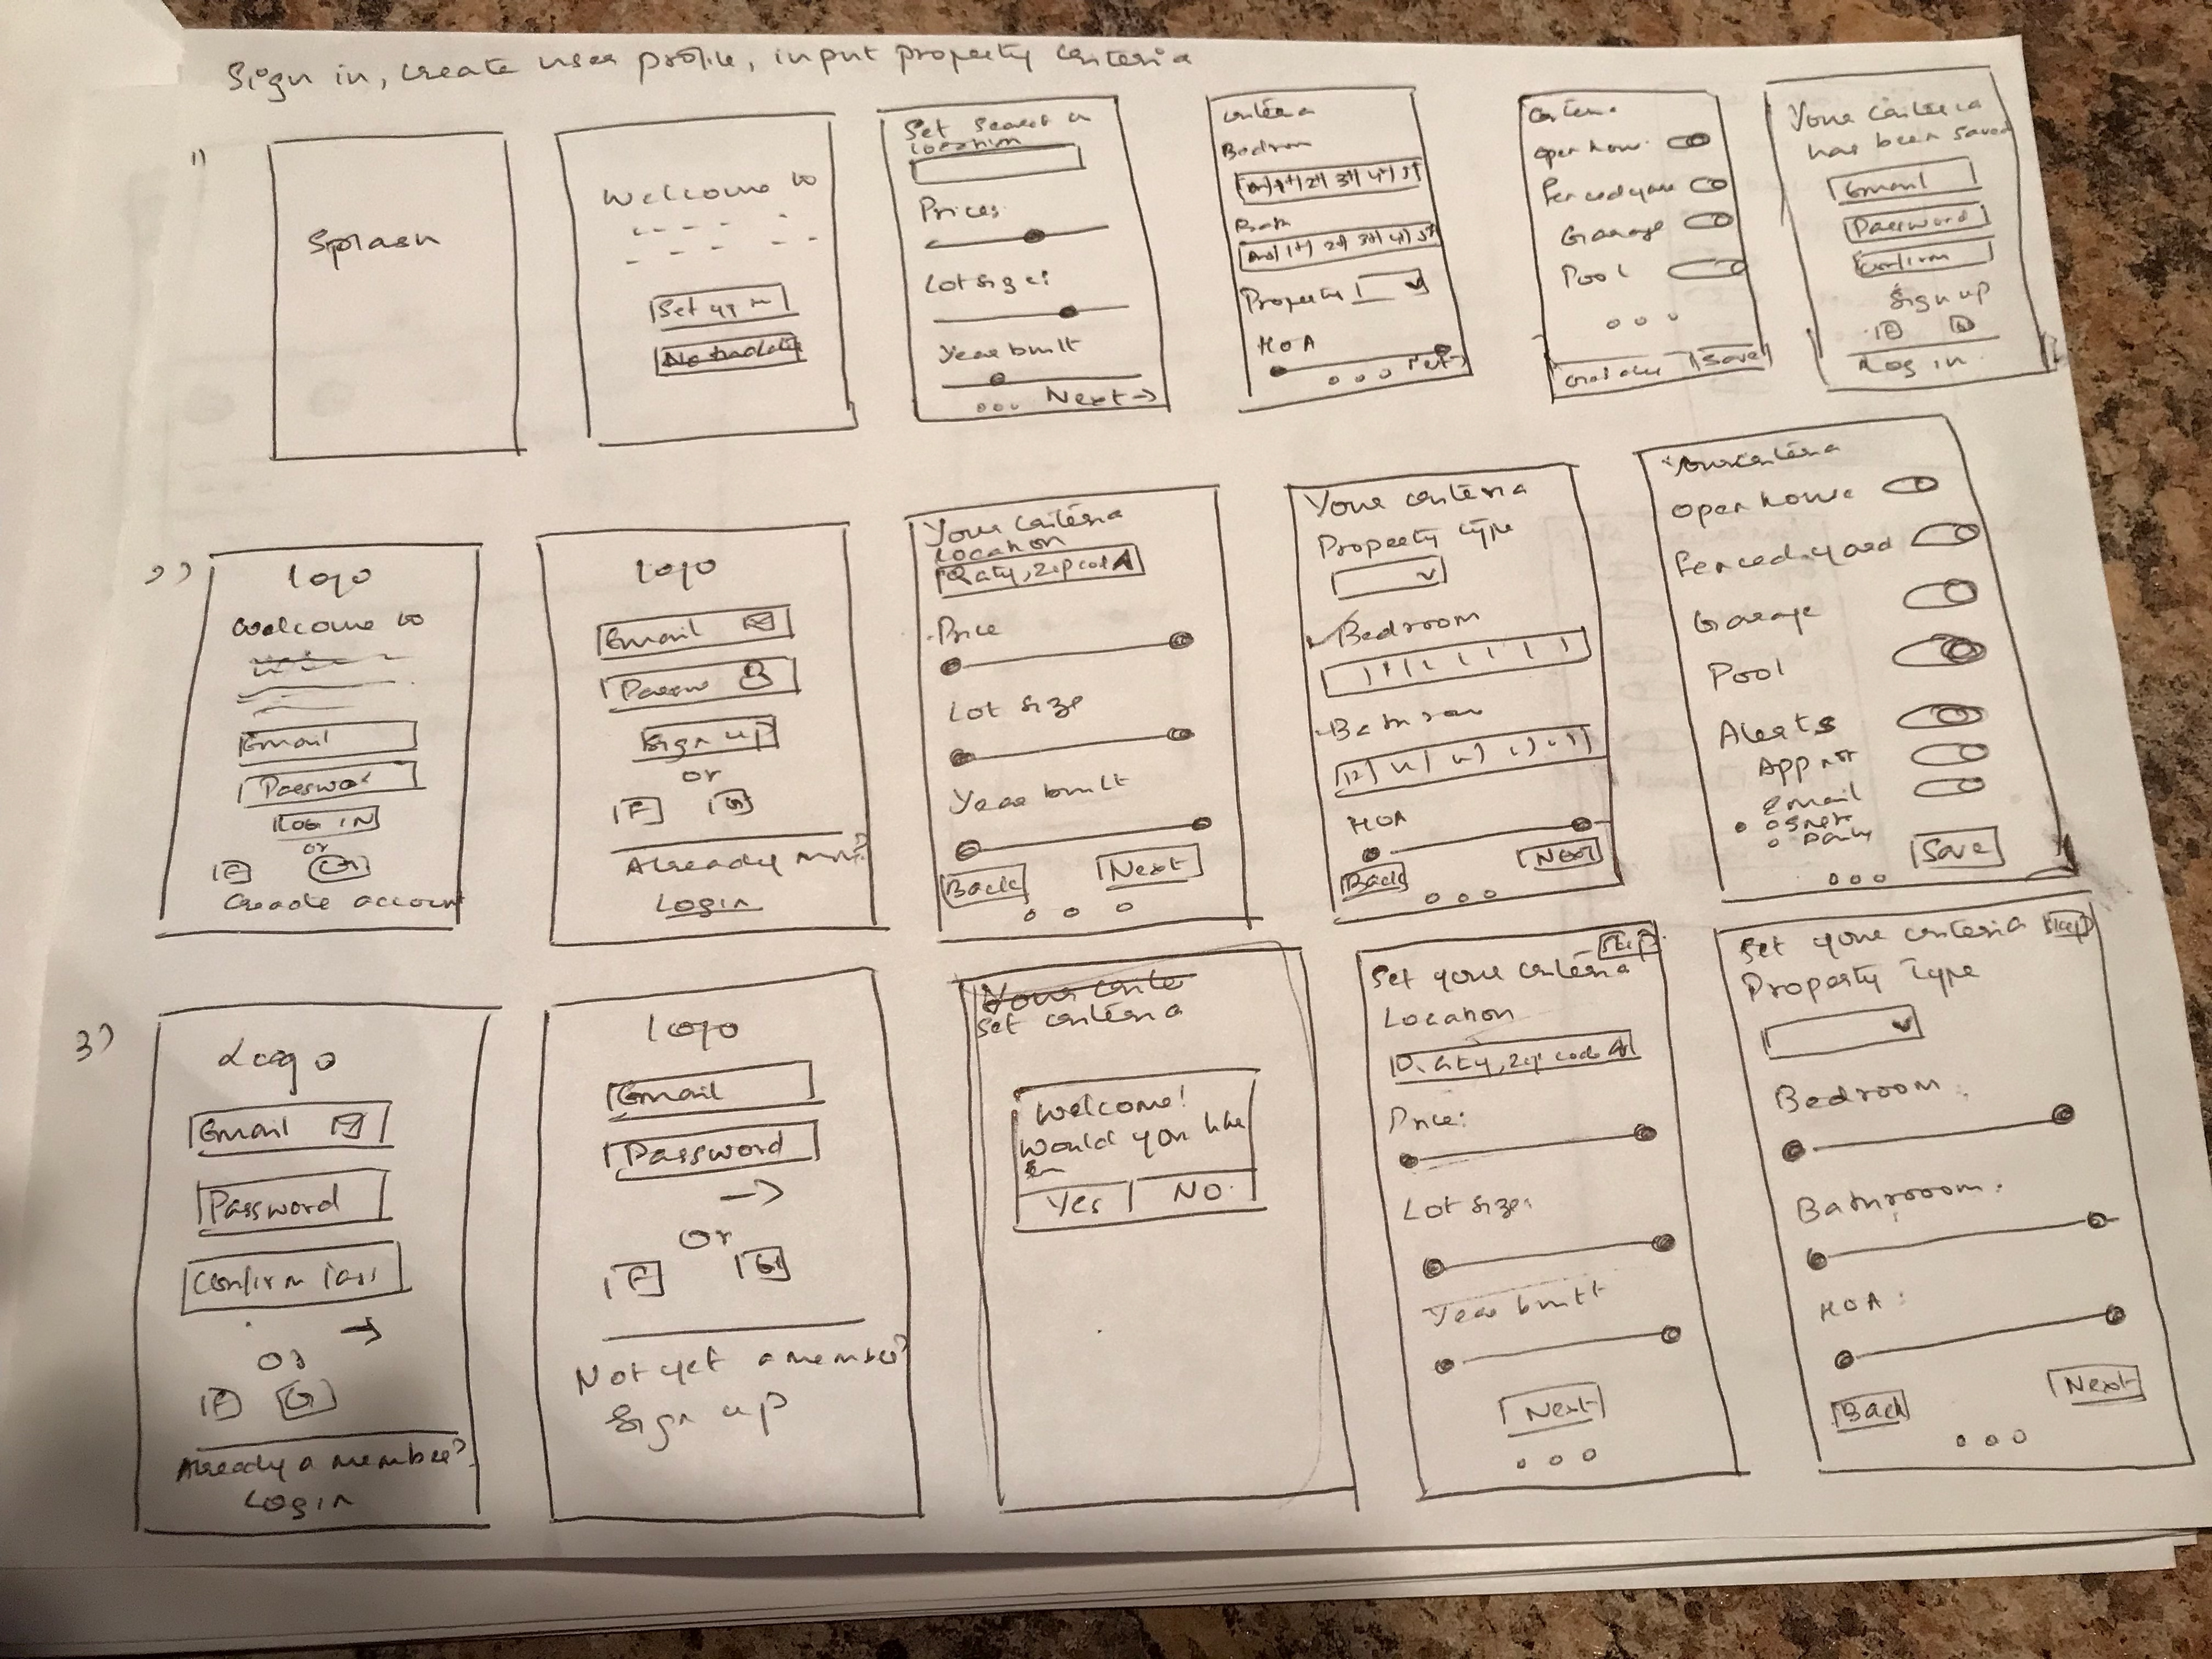 Sign in, create user profile, input property criteria
1)
Splash
Welcome to
Set up
Set search
location
Prices
Lot size:
Year built
Next →
Criteria
Bedroom
1+ 2+ 3+ 4+ 5+
Bath
1+ 2+ 3+ 4+ 5+
Property
HOA
Next
Criteria
Open hous
Fenced yard
Garage
Pool
Save
Your criteria
has been saved
Email
Password
Confirm
Sign up
F G
Log in
2)
logo
Welcome to
Email
Password
LOG IN
or
F G
Create account
logo
Email
Passw
Sign up
or
F G
Already
Login
Your criteria
Location
City, zip code
Price
Lot size
Year built
Back Next
Your criteria
Property type
Bedroom
Bathroom
HOA
Back Next
Your criteria
Open house
Fenced yard
Garage
Pool
Alerts
App not
Email
Daily
Save
3)
Logo
Email
Password
Confirm Pass
→
Or
F G
Already a member?
Login
logo
Email
Password
→
Or
F G
Not yet a member?
Sign up
Your crite
Set criteria
Welcome!
Would you like
Yes No
Skip
Set your criteria
Location
City, zip code
Price:
Lot size:
Year built
Next
Set your criteria Skip
Property Type
Bedroom:
Bathroom:
HOA:
Back Next